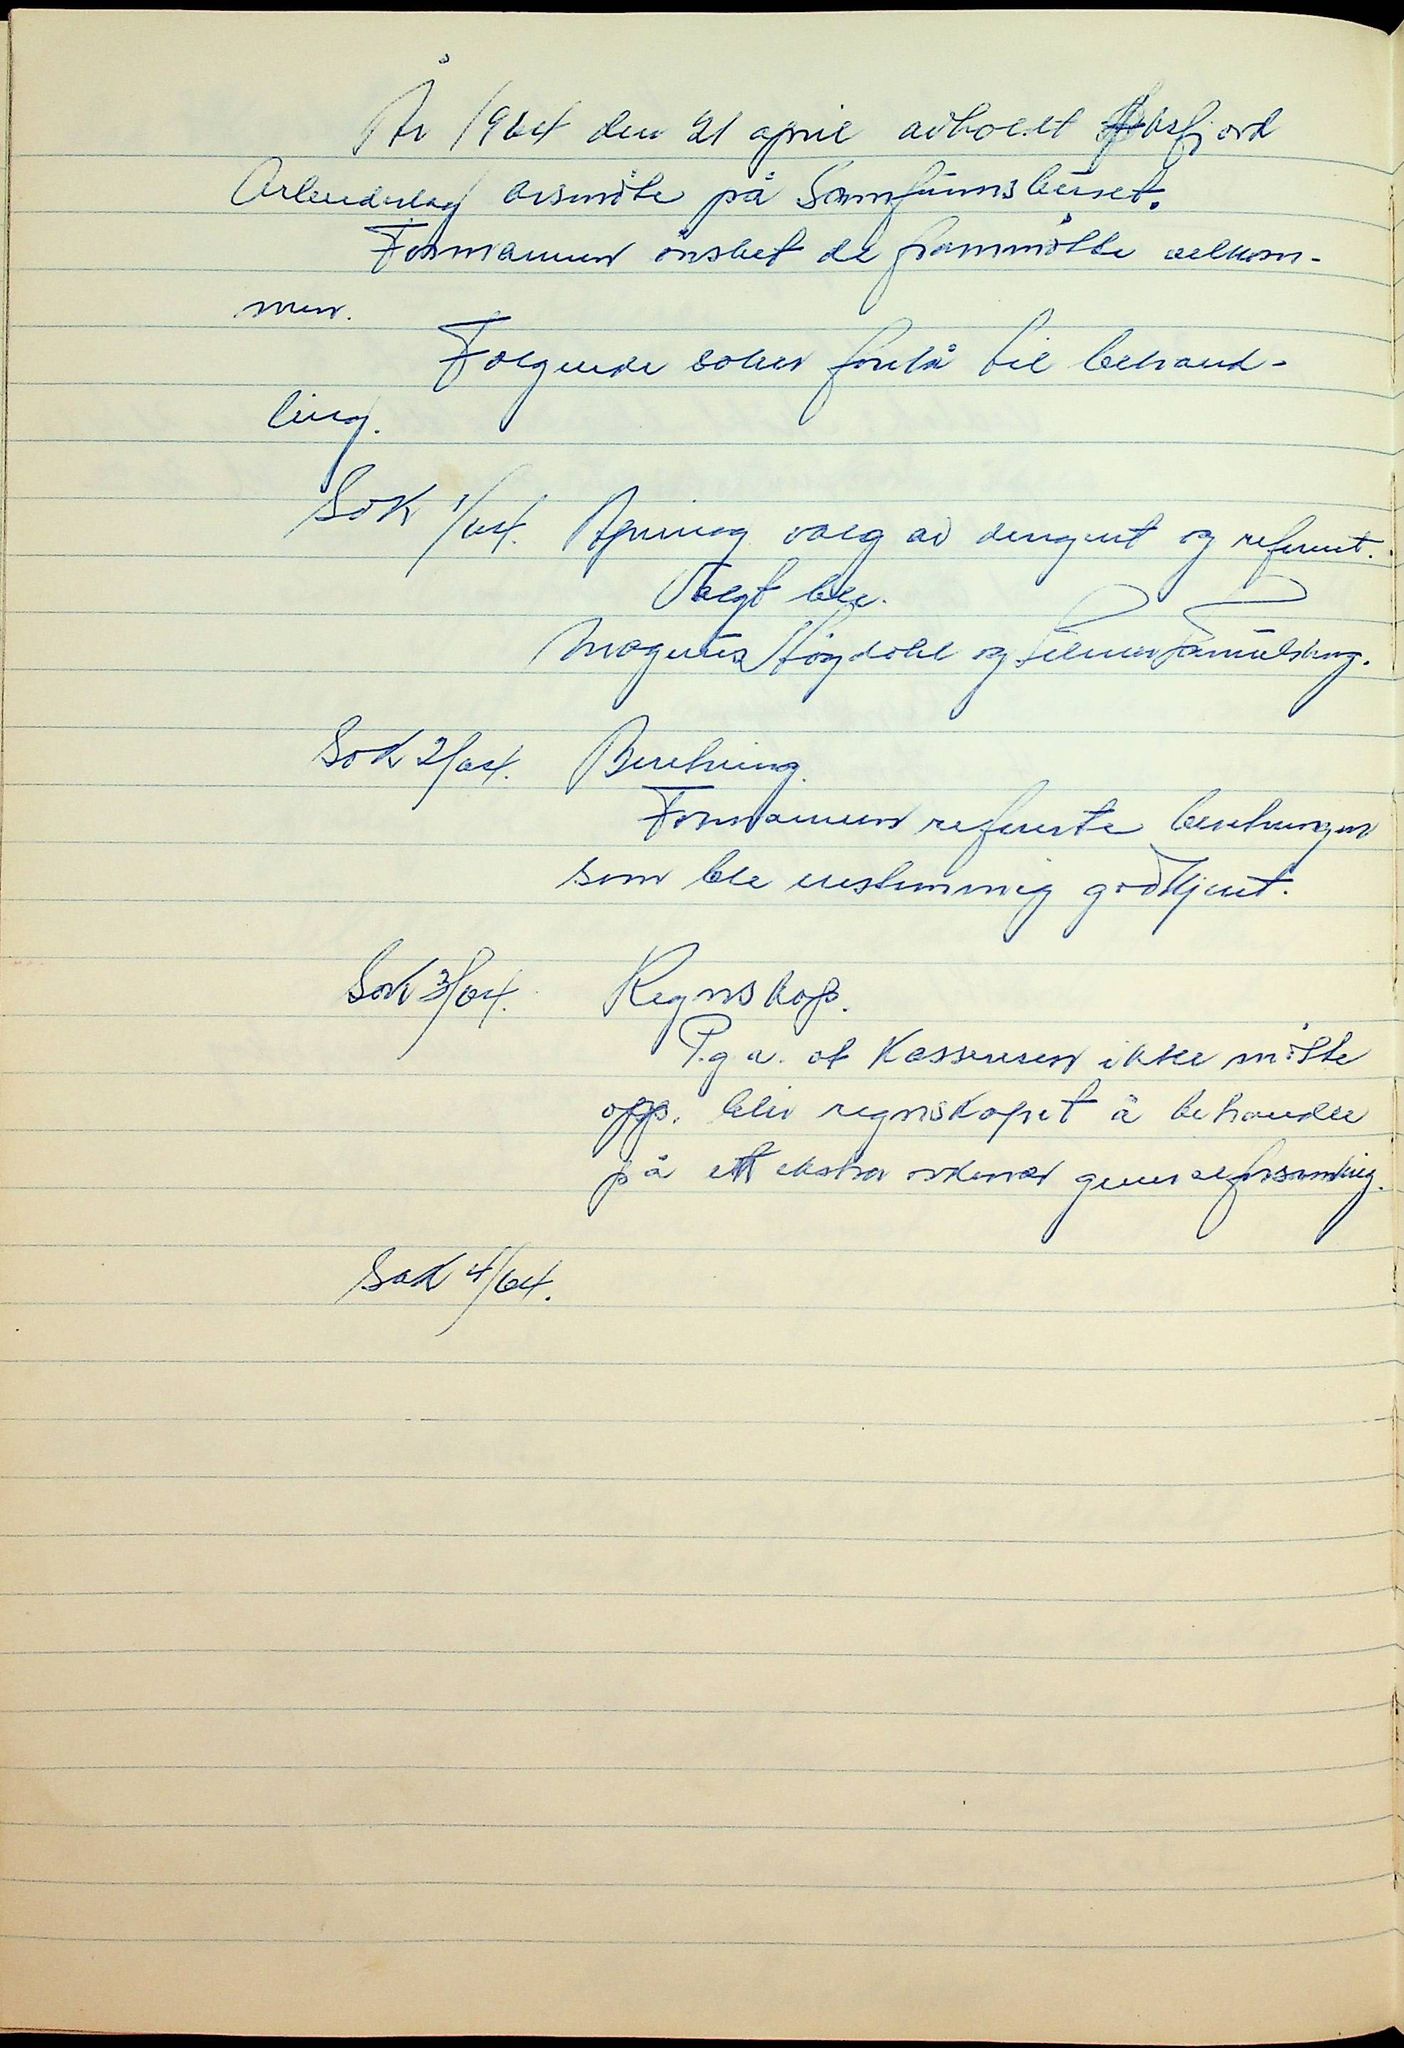 År 1964 den 21 april avholdt fjord
Arbeiderlag årsmöte på Samfunnshuset.
Formannen önsket de frammötte velkom-
men.
Følgende saker forelå til behand-
ling.
Sak 1/64. Åpning valg av dirigent og referent.
Valgt ble.
Magnus Högdahl og
Sak 2/64. Beretning.
Formannen refererte beretningen
som ble enstemmig godkjent.
Sak 3/64. Regnskap.
P.g.a. at Kassereren ikke mötte
opp. bliv regnskapet å behandle
på ett ekstra ordinær generalforsamling.
Sak 4/64.